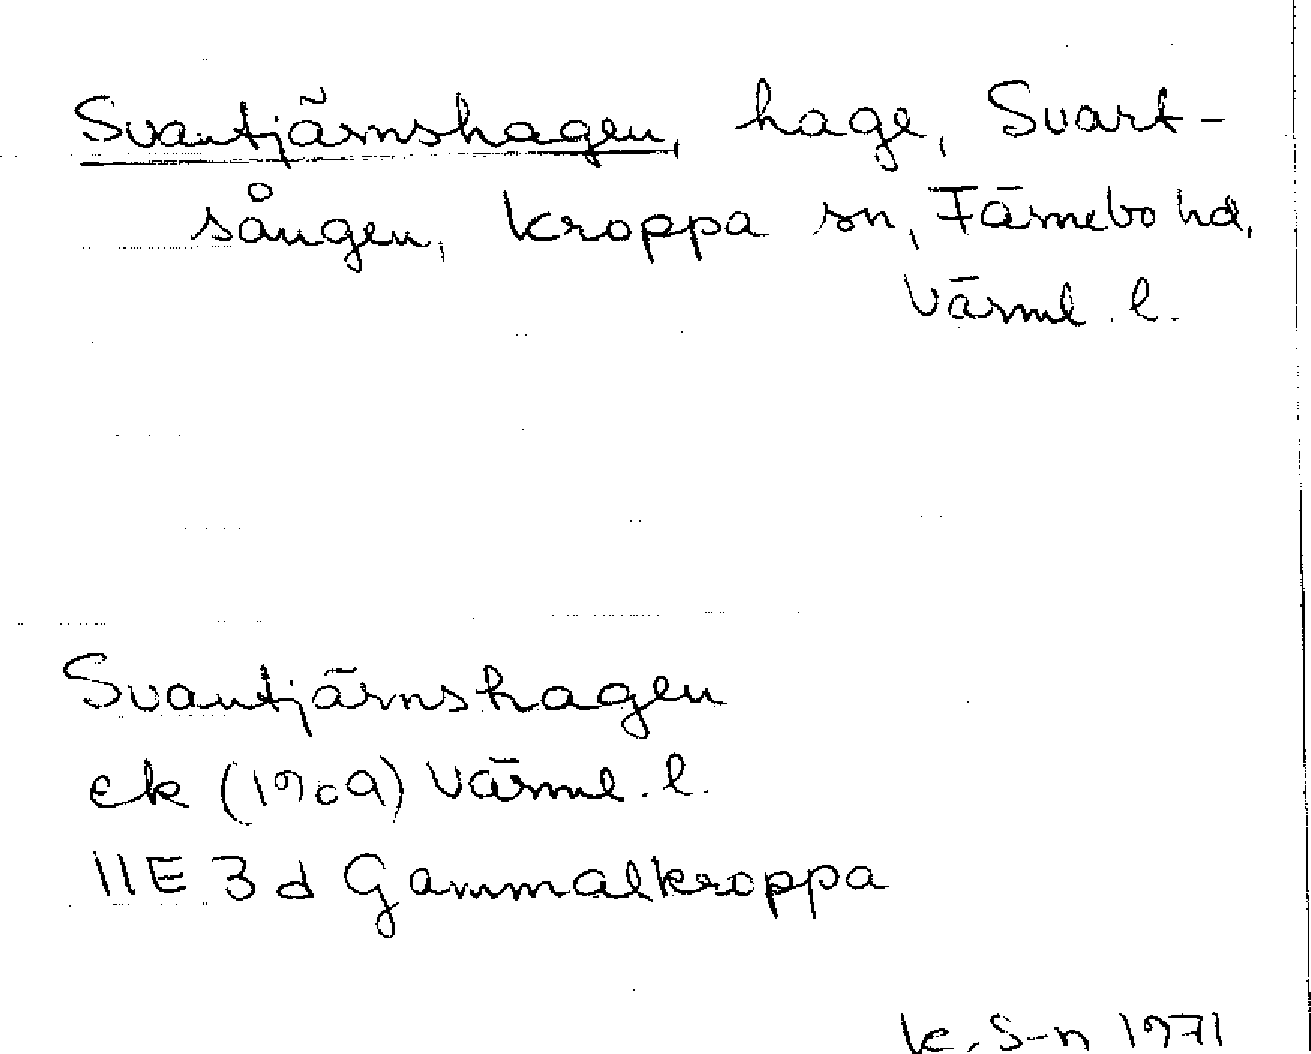 Svantjärnshagen, hage, Svart-
sången, Kroppa sn, Färnebo hd,
Värml. l.
Svantjärnshagen
ek (1909) Värml. l.
11E 3d Gammalkroppa
K. S-n 1971